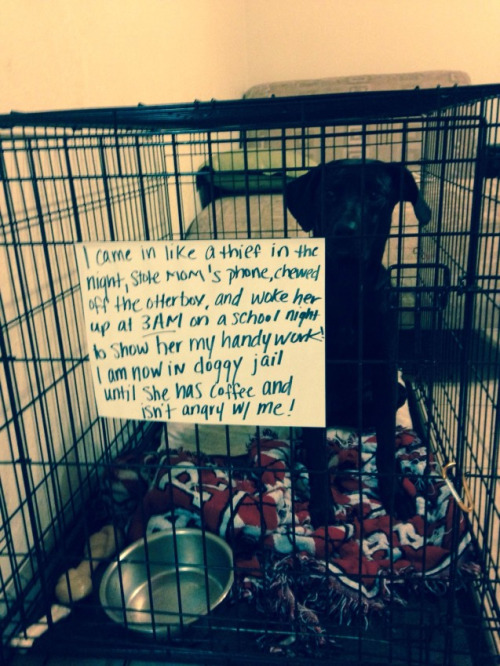 I came in like a thief in the
night, stole MOM's phone, chewed
off the otterbox, and woke her
up at 3AM on a school night
to show her my handy work!
I am now in doggy jail
until she has coffee and
isn't angry w/ me!